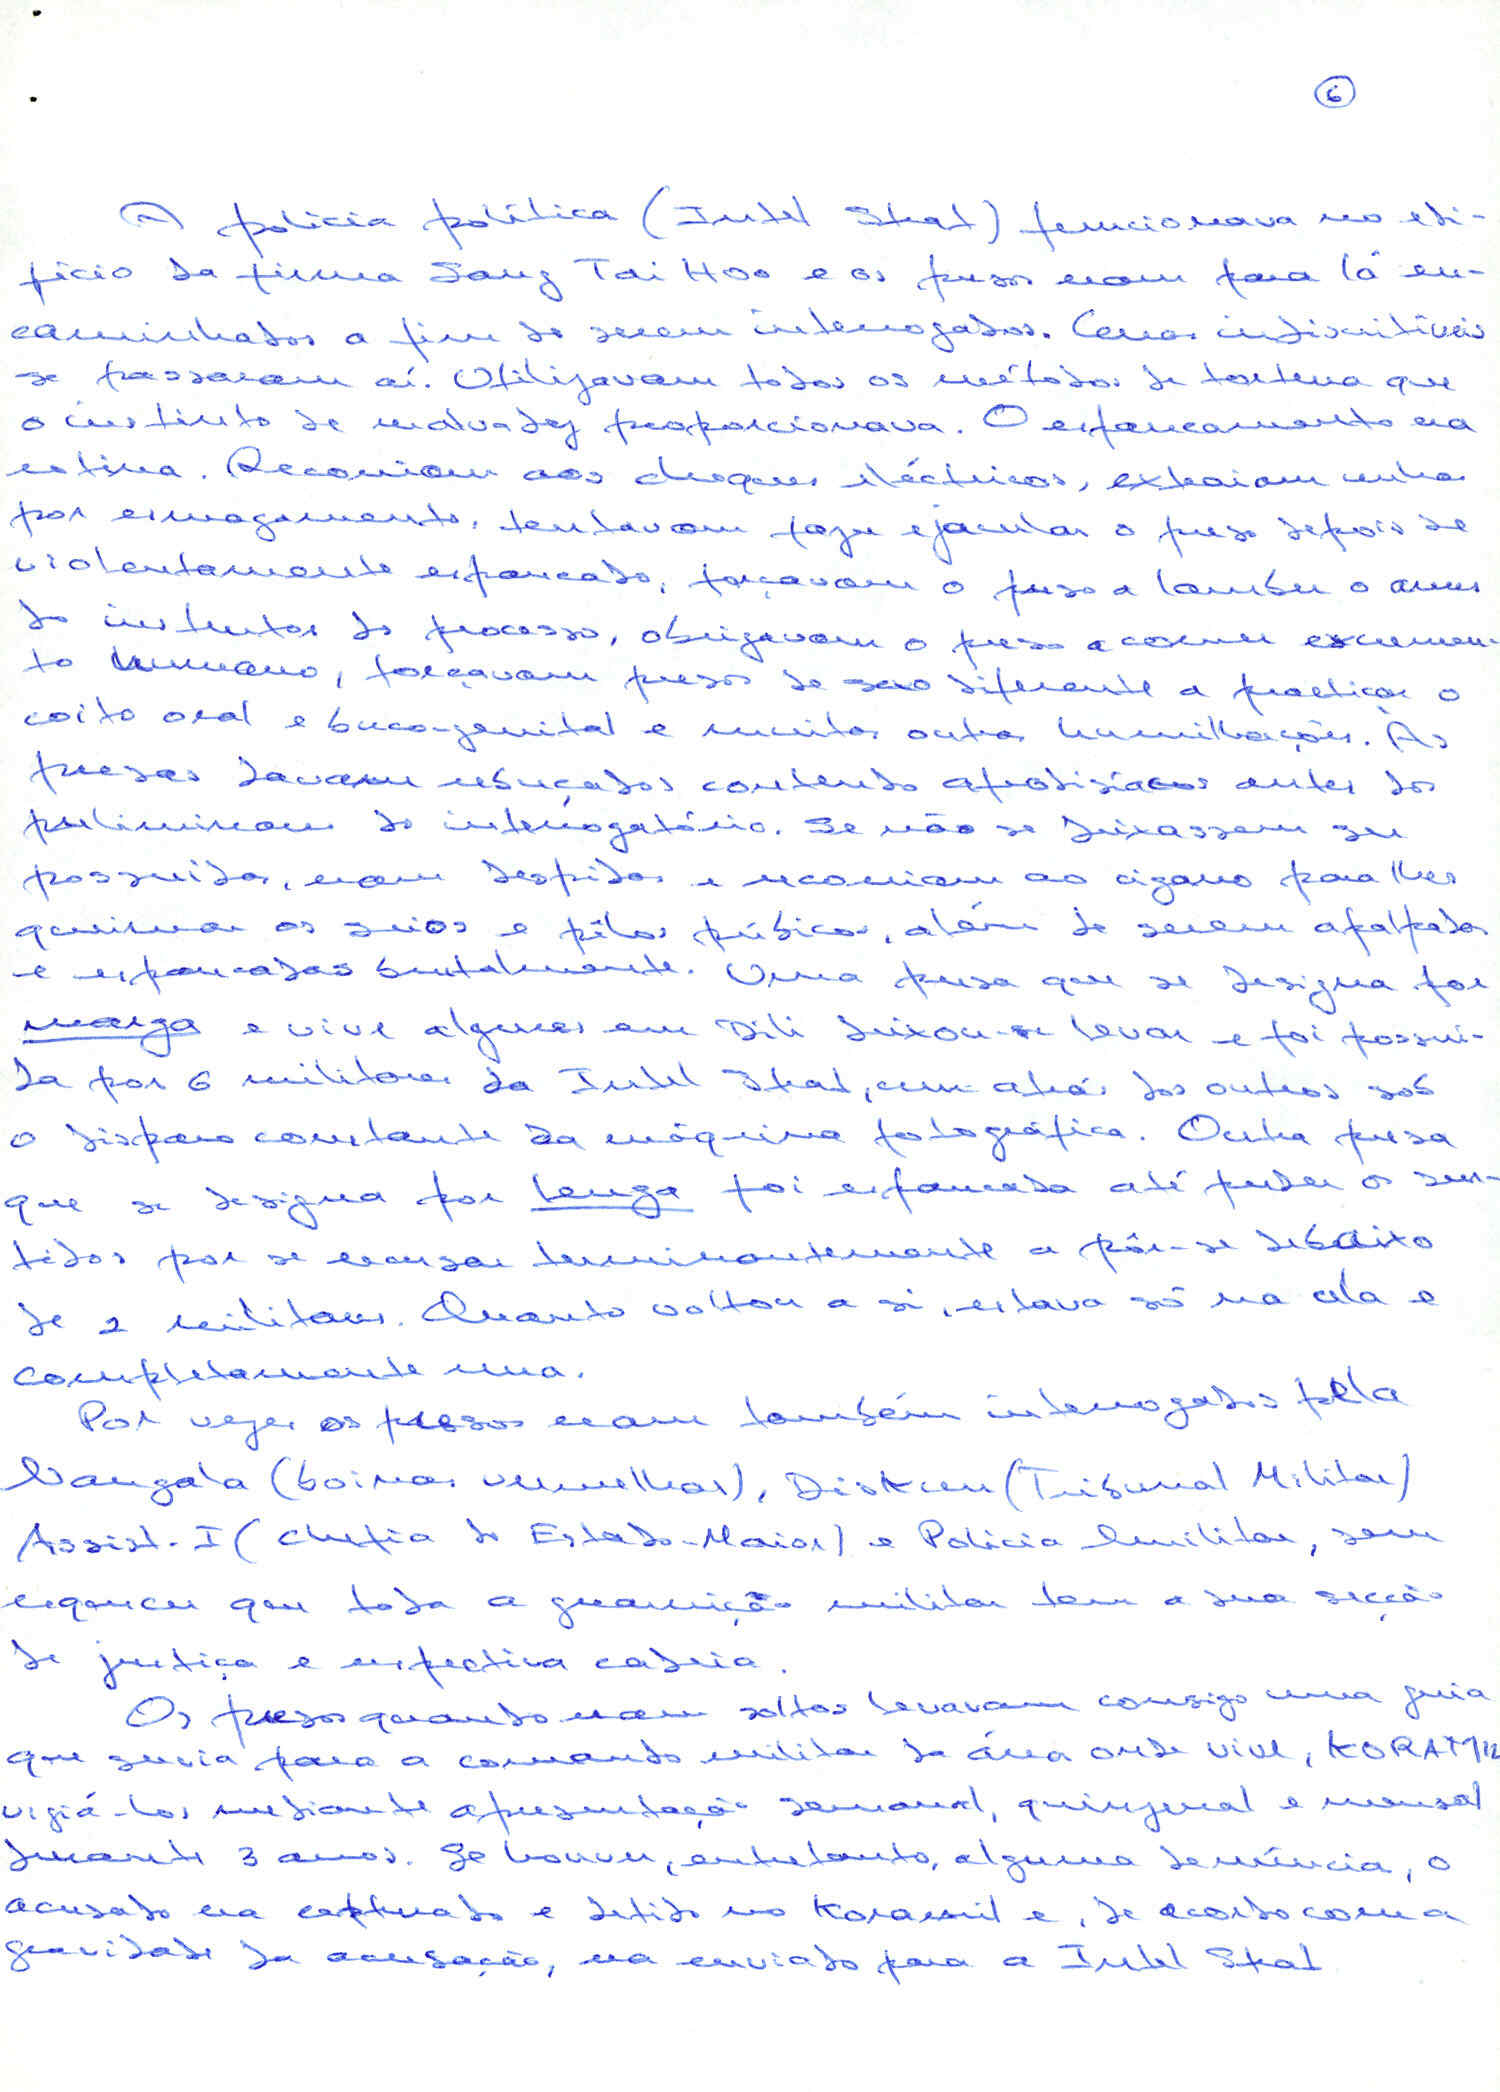 6
A polícia política (Intel Skal) funcionava no edi-
fício da firma Sang Tai Hoo e os presos eram para lá en-
caminhados a fim de serem interrogados. Cenas indiscritíveis
se passaram aí. Utilizavam todos os métodos de tortura que
o instinto de malvadez proporcionava. O espancamento era
rotina. Recorriam aos choques eléctricos, extraiam unhas
por esmagamento, tentavam fazer ejacular o preso depois de
violentamente espancado, forçavam o preso a lamber o anus
do instrutor do processo, obrigavam o preso a comer excremen-
to humano, forçavam presos de sexo diferente a practicar o
coito oral e buco-genital e muitas outras humilhações. Às
presas davam rebuçados contendo afrodisíacos antes dos
preliminares do interrogatório. Se não se deixassem ser
possuidas, eram despidas e recorriam ao cigarro para lhes
queimar os seios e pêlos púbicos, além de serem apalpadas
e espancadas brutalmente. Uma presa que se designa por
marga e vive algures em Dili deixou-se levar e foi possui-
da por 6 militares da Intel Skal, um atrás dos outros sob
o disparo constante da máquina fotográfica. Outra presa
que se designa por lenga foi espancada até perder os sen-
tidos por se recusar terminantemente a pôr-se debaixo
de 2 militares. Quando voltou a si, estava só na cela e
completamente nua.
Por vezes os presos eram também interrogados pela
Nangala (boinas vermelhas), Diskcen (Tribunal Militar)
Assist. I (chefia do Estado-Maior) e Polícia Militar, sem
esquecer que toda a guarnição militar tem a sua secção
de justiça e respectiva cadeia.
Os presos quando eram soltos levavam consigo uma guia
que servia para o comando militar da área onde vive, KORAMIL
vigiá-los mediante apresentação semanal, quinzenal e mensal
durante 3 anos. Se houver, entretanto, alguma denúncia, o
acusado era capturado e detido no Koramil e, de acordo com a
gravidade da acusação, era enviado para a Intel Skal